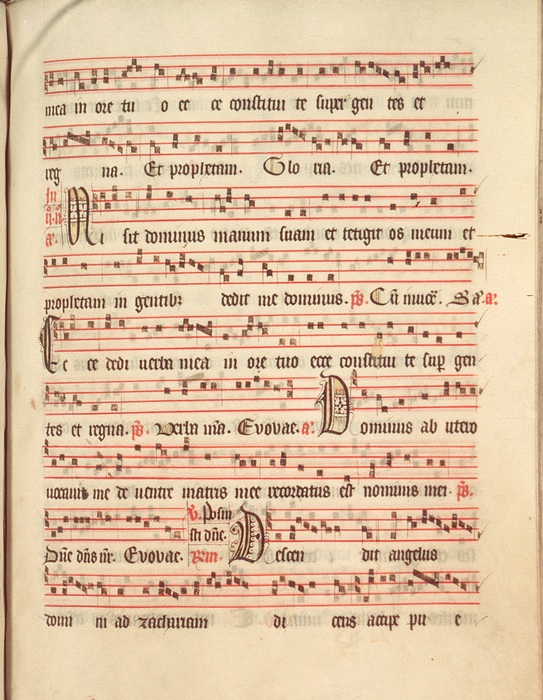 mea in ore tu o ec ce constitui te super gen tes et
reg na. Et prophetam. Glo ria. Et prophetam.
In
ii. n.
a. Mi sit dominus manum suam et tetigit os meum et
prophetam in gentibz dedit me dominus. ps. Cū inuoc̄. Sa a.
Ec ce dedi uerba mea in ore tuo ecce constitui te sup gen
tes et regna. ps Verba m̄a. Evovae. a. Dominus ab utero
uocauit me de uentre matris mee recordatus est nominis mei. ps.
v. Posui
sti dn̄e.
Dn̄e dn̄s nr̄. Evovae. Descen dit angelus
domi ni ad zachariam di cens accipe pu e